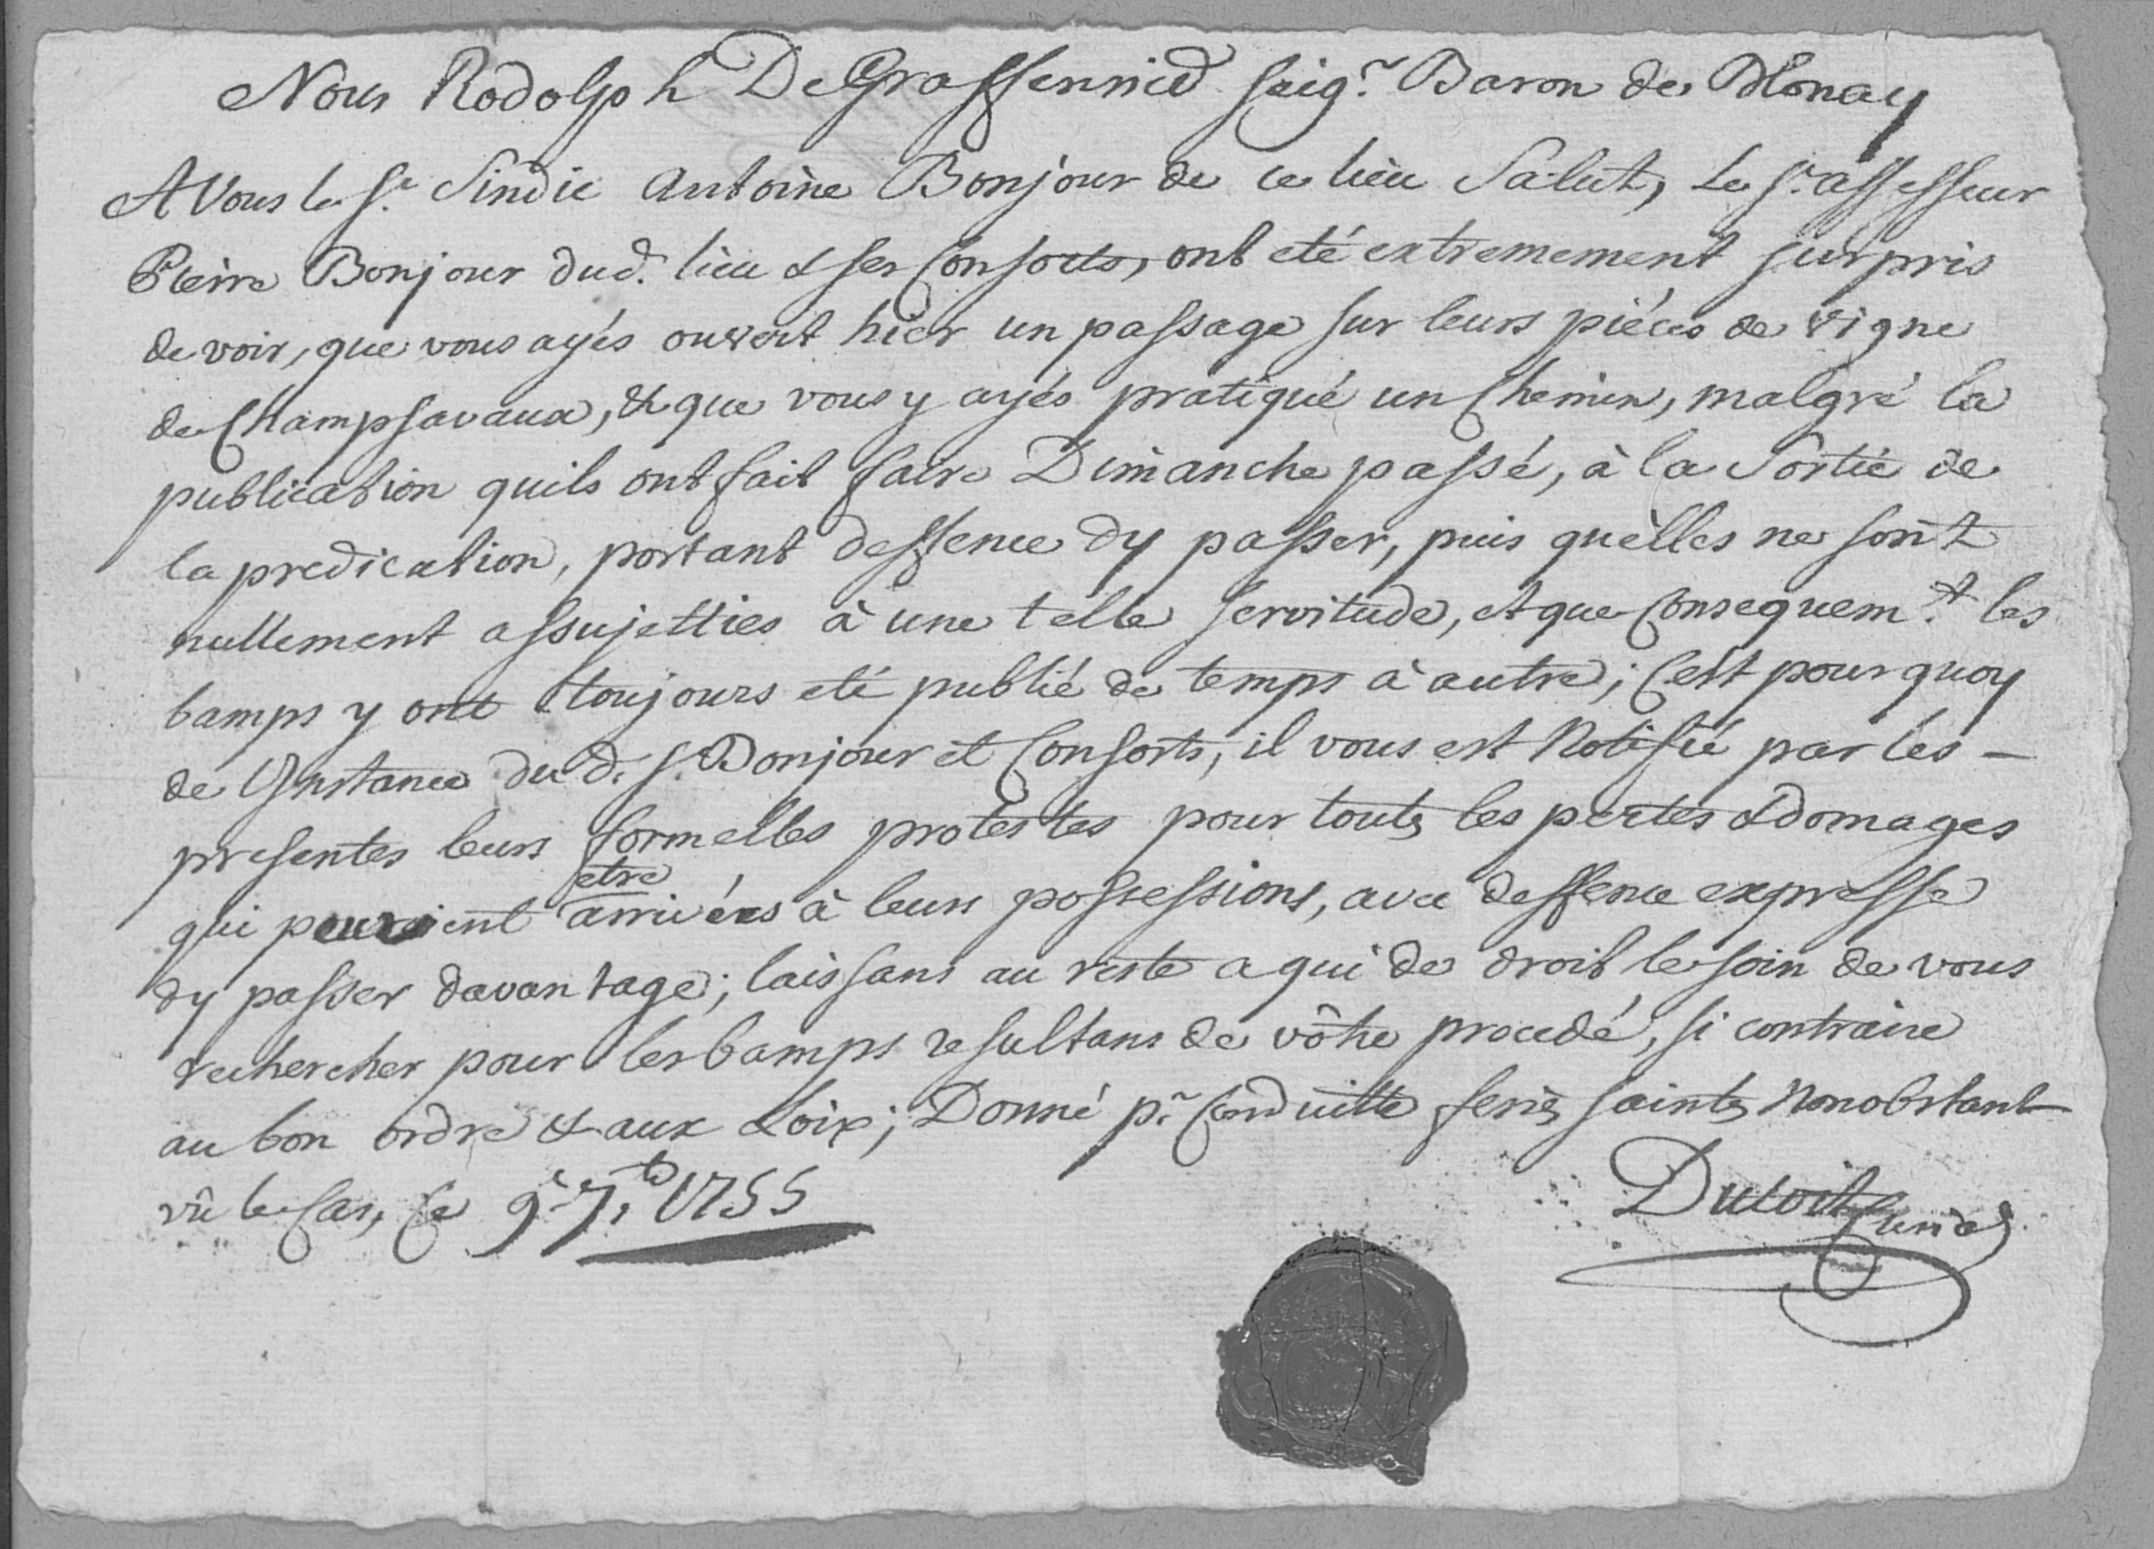 Nous Rodolph De Graffenried Seigr. Baron de Blonay
A Vous le Sr. Sindic Antoine Bonjour de ce lieu Salut, Le Sr. assesseur
Pierre Bonjour dud. lieu & ses Consorts, ont eté extremement surpris
de voir, que vous ayés ouvert hier un passage sur leurs piéces de vigne
de Champsavaux, & que vous y ayés pratiqué un Chemin, malgré la
publication quils ont fait faire Dimanche passé, à la Sortie de
la predication, portant deffence dy passer, puis quelles ne sont
nullement assujetties à une telle servitude, et que Consequemt. les
bamps y ont toujours eté publié de temps à autre; Cest pourquoy
de Instance du d. Sr. Bonjour et Consorts, il vous est Notifié par les –
presentes leurs formelles protestes pour touts les pertes & domages
qui pouroient etre arrivées à leurs possessions, avec deffence expresse
dy passer davantage; laissans au reste a qui de droit le soin de vous
rechercher pour les bamps resultans de vôtre procedé, si contraire
au bon ordre & aux Loix; Donné pr. Conduitte feries saintes Nonobstant
vû le Cas, Ce 9e. 7bre 1755
Dutoit